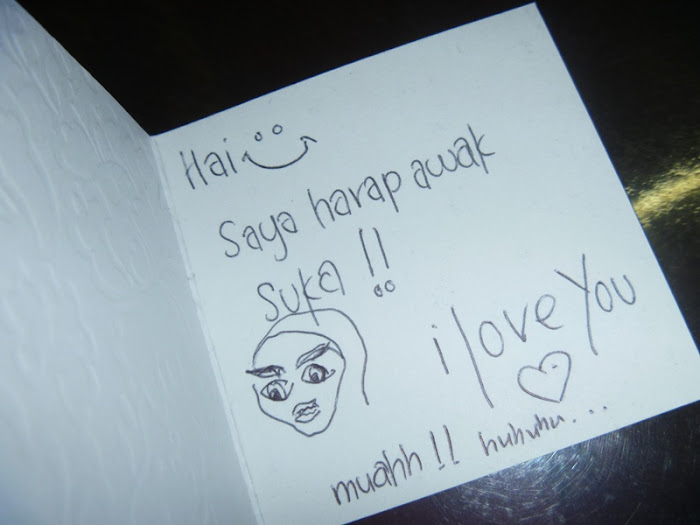 Hai
Saya harap awak
suka !!
i love You
muahh !! huhuhu...